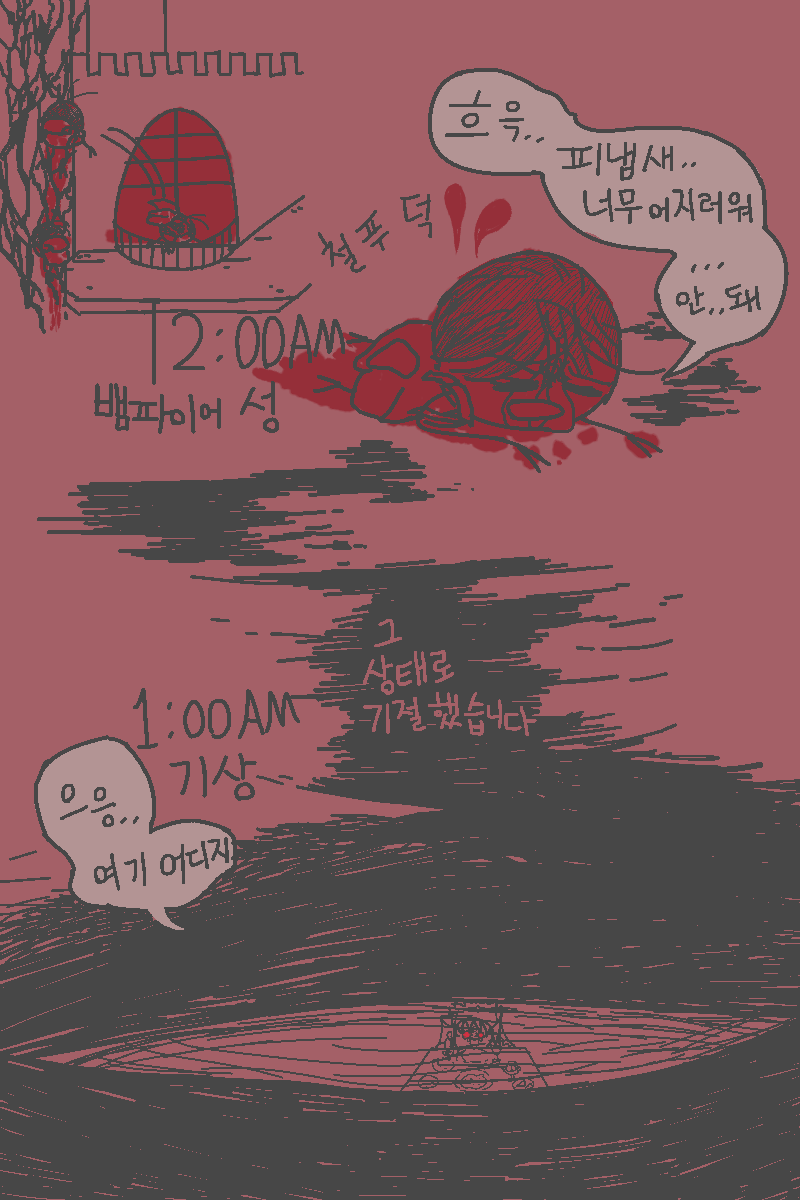 흐윽..
피냄새..
너무 어지러워
...
안,,돼
철푸덕
12:00AM
뱀파이어 성
그
상태로
기절했습니다
1:00AM
기상
으응..
여기 어디지